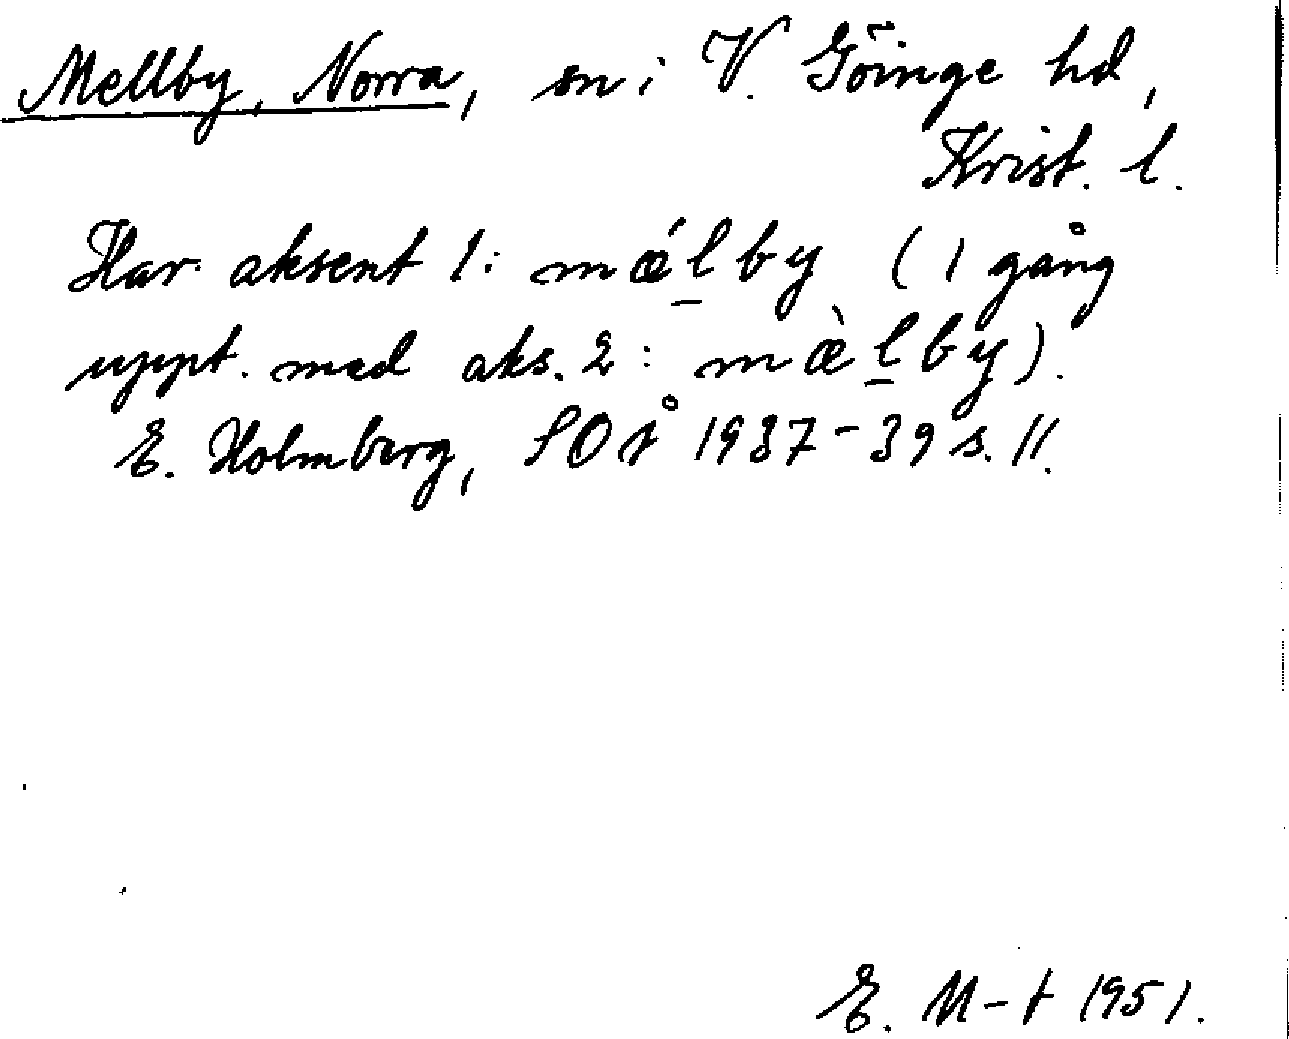 Mellby, Norra, sn i V. Göinge hd,
Krist. l.
Har aksent 1: mǽl̲by (1 gång
uppt. med aks. 2: mæ̀l̲by).
E. Holmberg, SOÅ 1937-39 s. 11.
E. M-t 1951.